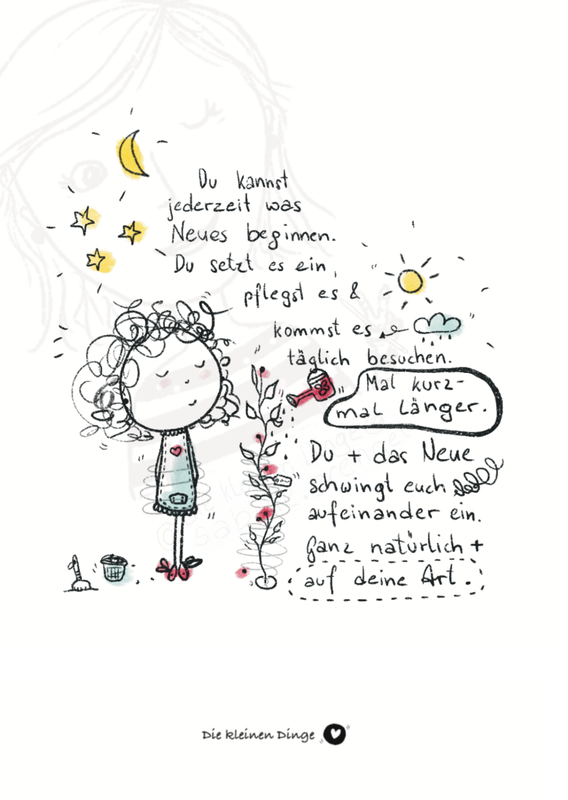 Du kannst
jederzeit was
Neues beginnen.
Du setzt es ein,
pflegst es &
kommst es
täglich besuchen.
Mal kurz-
mal länger.
Du + das Neue
schwingt euch
aufeinander ein.
Ganz natürlich +
auf deine Art.
Die kleinen Dinge